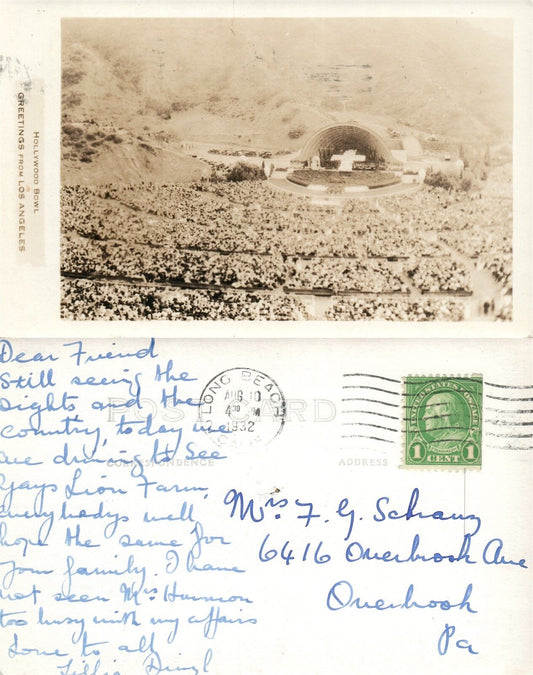 HOLLYWOOD BOWL
GREETINGS FROM LOS ANGELES
Dear Friend
Still seeing the
sights and the
country, today we
are driving to see
Gays Lion Farm,
everybodys well
hope the same for
your family. I have
not seen Mrs Harmon
too busy with my affairs
Love to all
Lillie
POST CARD
CORRESPONDENCE
ADDRESS
LONG BEACH
AUG 10
4 30 PM
1932
CALIF.
UNITED STATES POSTAGE
1 CENT 1
Mrs F. G. Schanz
6416 Overbrook Ave
Overbrook
Pa